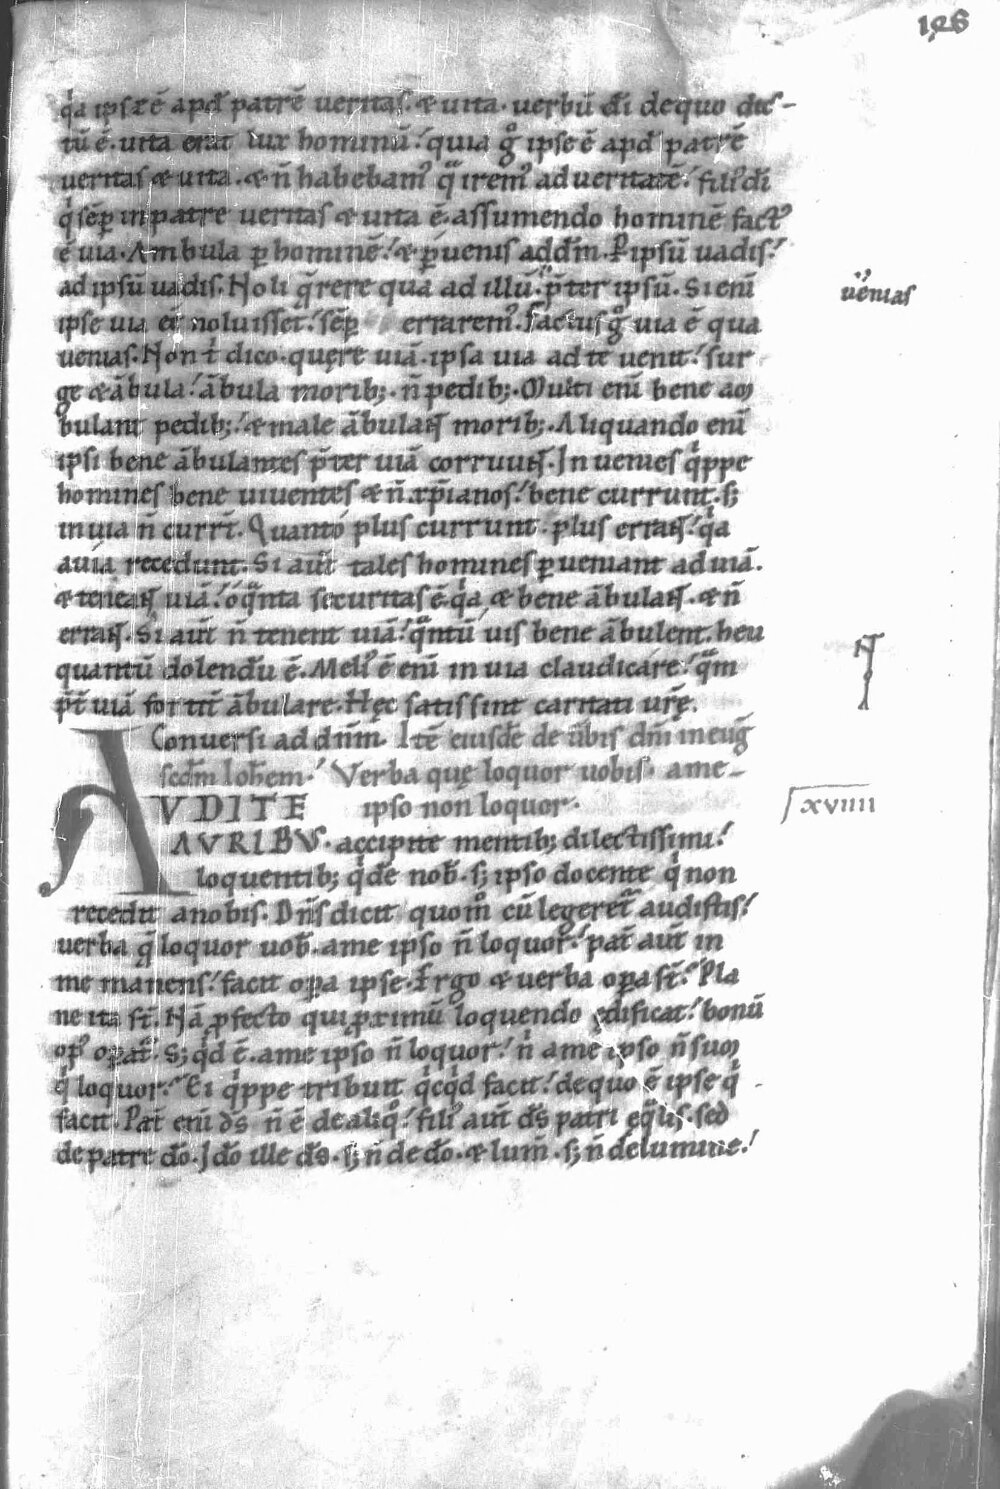 196
q̇a ipse ē apđ patrē ueritas. & uita. uerbū dī de quo dic-
tū ē. uita erat lux hominū. quia g̊ ipse ē apđ patrē
ueritas & uita. & n̄ habebam᷒ q̄ irem᷒ ad ueritatē. fili᷒ dī
q̇ sēp̄ in patre ueritas & uita ē. assumendo hominē fact᷒
ē uia. Ambula ꝑ hominē. & ꝑuenis ad dm̄. Ꝑ ipsū uadis.
ad ipsū uadis. Noli q̄rere qua ad illū. p̄ter ipsū. Si enī
uenias
ipse uia eē noluisset. sēꝑ errarem᷒. Factus g̊ uia ē qua
uenias. Non t̄ dico. quęre uiā. ipsa uia ad te uenit. sur
ge & ābula. ābula morib;. n̄ pedib;. Multi enī bene am
bulant pedib;. & male ābulaꞟ morib;. Aliquando enī
ipsi bene ābulantes p̄ter uiā corruuꞟ. Inuenies q̇ppe
homines bene uiuentes & n̄ xp̄ianos. bene currunt. s;
in uia n̄ currꞇ̄. Quanto plus currunt. plus erraꞟ. q̇a
a uia recedunt. Si auꞇ̄ tales homines ꝑueniant ad uiā.
& teneaꞟ uiā. o q̄nta securitas ē. q̇a & bene ābulaꞟ. & n̄
erraꞟ. Si auꞇ̄ n̄ tenent uiā. q̄ntū uis bene ābulent. heu
quantū dolendū ē. Meli᷒ ē enī in uia claudicare. q̄m
p̄ꞇ̄ uiā fortiꞇ̄ ābulare. Hęc satis sint caritati urę̄.
Conuersi ad dn̄m. Itē eiusdē de ūbis dn̄i in euḡ
scdm̄ Ioh̄em. Verba quę loquor uobis. a me-
AVDITE ipso non loquor.
xviiii
AVRIBVS. accipite mentib; dilectissimi.
loquentib; q̇dē nob̄. s; ipso docente q̇ non
recedit a nobis. Dn̄s dicit quom̊ cū legereꞇ̄ audistis.
uerba q̄ loquor uob̄. a me ipso n̄ loquor. paꞇ̄ auꞇ̄ in
me manens. facit oꝑa ipse. Ergo & uerba oꝑa sꞇ̄. Pla
ne ita sꞇ̄. Nā ꝓfecto qui ꝓximū loquendo ędificat. bonū
op᷒ oꝑaꞇ̄. S; q̇d ē. a me ipso n̄ loquor. ṅ a me ipso n̄ sum
q̇ loquor. Ei q̇ppe tribuit q̇cq̇d facit. de quo ē ipse q̇
facit. Paꞇ̄ enī ds̄ n̄ ē de aliq̊. fili᷒ auꞇ̄ ds̄ patri eq̄lis. sed
de patre dō. Idō ille ds̄. s; n̄ de dō. & lum̄. s; n̄ de lumine.